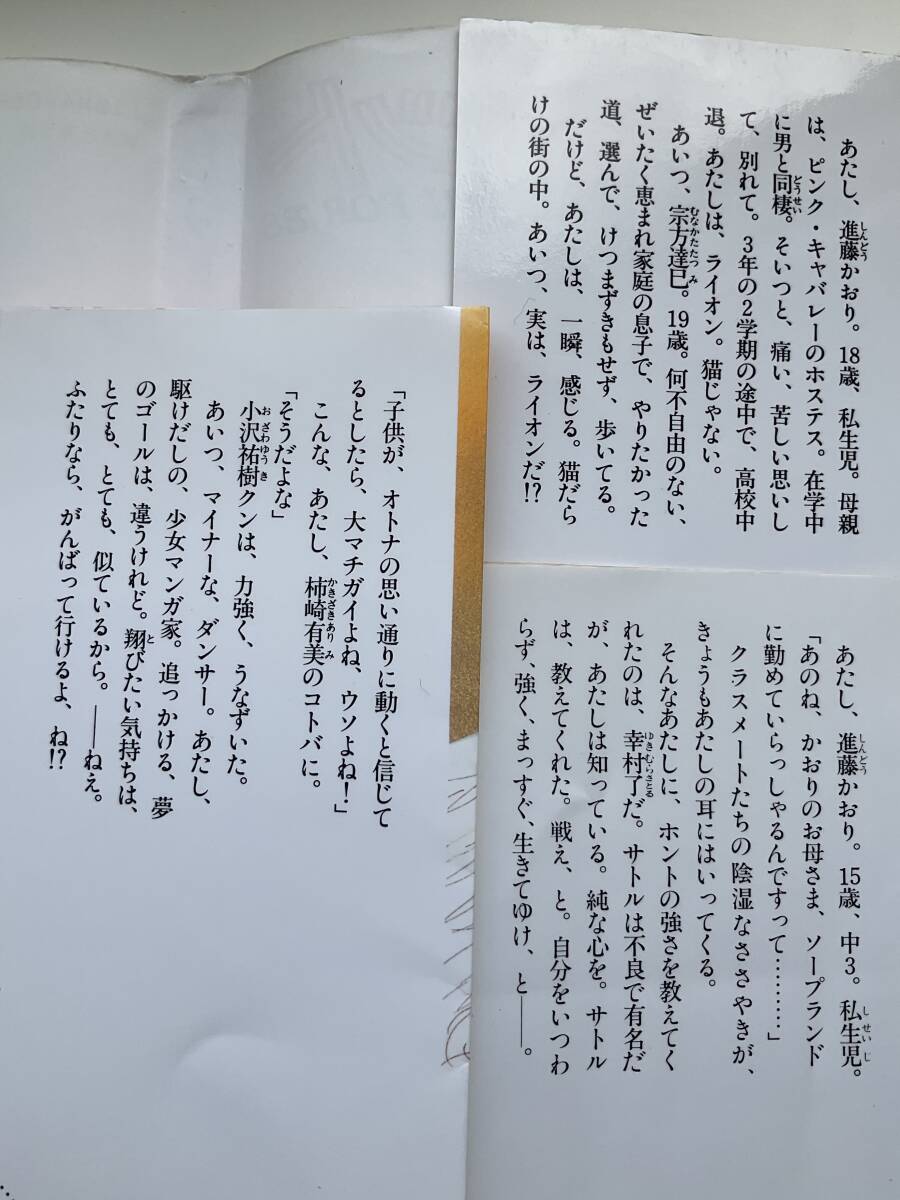 あたし、進藤かおり。18歳、私生児。母親
は、ピンク・キャバレーのホステス。在学中
に男と同棲。そいつと、痛い、苦しい思いし
て、別れて。3年の2学期の途中で、高校中
退。あたしは、ライオン。猫じゃない。
あいつ、宗方達巳。19歳。何不自由のない、
ぜいたく恵まれ家庭の息子で、やりたかった
道、選んで、けつまずきもせず、歩いてる。
だけど、あたしは、一瞬、感じる。猫だら
けの街の中。あいつ、実は、ライオンだ!?
あたし、進藤かおり。15歳、中3。私生児。
「あのね、かおりのお母さま、ソープランド
に勤めていらっしゃるんですって………」
クラスメートたちの陰湿なささやきが、
きょうもあたしの耳にはいってくる。
そんなあたしに、ホントの強さを教えてく
れたのは、幸村了だ。サトルは不良で有名だ
が、あたしは知っている。純な心を。サトル
は、教えてくれた。戦え、と。自分をいつわ
らず、強く、まっすぐ、生きてゆけ、と――。
「子供が、オトナの思い通りに動くと信じて
るとしたら、大マチガイよね、ウソよね!」
こんな、あたし、柿崎有美のコトバに。
「そうだよな」
小沢祐樹クンは、力強く、うなずいた。
あいつ、マイナーな、ダンサー。あたし、
駆けだしの、少女マンガ家。追っかける、夢
のゴールは、違うけれど。翔びたい気持ちは、
とても、とても、似ているから。――ねえ。
ふたりなら、がんばって行けるよ、ね!?